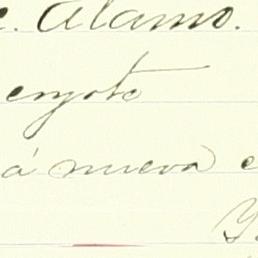 c. Alamo.
enyoto
á nueva e
Y.